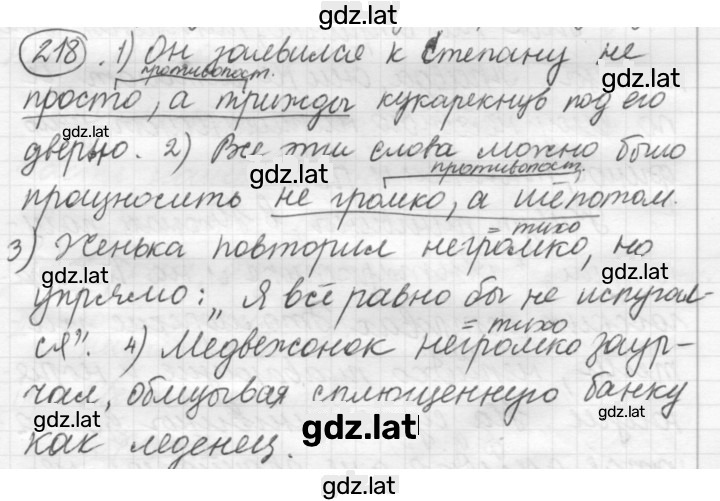 gdz.lat
218. 1) Он заявился к Степану не
противопост.
gdz.lat
просто, а трижды кукарекнув под его
gdz.lat
дверью. 2) Все эти слова можно было
противопост.
gdz.lat
произносить не громко, а шёпотом.
= тихо
3) Женька повторил негромко, но
gdz.lat
gdz.lat
упрямо: „Я всё равно бы не испугал-
= тихо
ся". 4) Медвежонок негромко заур-
чал, облизывая сплющенную банку
gdz.lat
gdz.lat
gdz.lat
как леденец.
gdz.lat